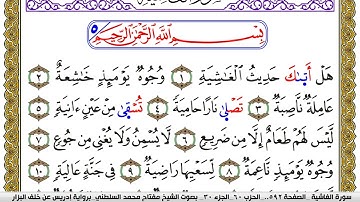 بِسْمِ اللَّهِ الرَّحْمَٰنِ الرَّحِيمِ
هَلْ أَتَىٰكَ حَدِيثُ الْغَٰشِيَةِ ١ وُجُوهٌ يَوْمَئِذٍ خَٰشِعَةٌ ٢
عَامِلَةٌ نَّاصِبَةٌ ٣ تَصْلَىٰ نَارًا حَامِيَةً ٤ تُسْقَىٰ مِنْ عَيْنٍ ءَانِيَةٍ ٥
لَّيْسَ لَهُمْ طَعَامٌ إِلَّا مِن ضَرِيعٍ ٦ لَّا يُسْمِنُ وَلَا يُغْنِي مِن جُوعٍ ٧
وُجُوهٌ يَوْمَئِذٍ نَّاعِمَةٌ ٨ لِّسَعْيِهَا رَاضِيَةٌ ٩ فِي جَنَّةٍ عَالِيَةٍ ١٠
سورة الغاشية . الصفحة ٥٩٢ .. الحزب ٦٠ . الجزء ٣٠ . بصوت الشيخ مفتاح محمد السلطني . برواية إدريس عن خلف البزار